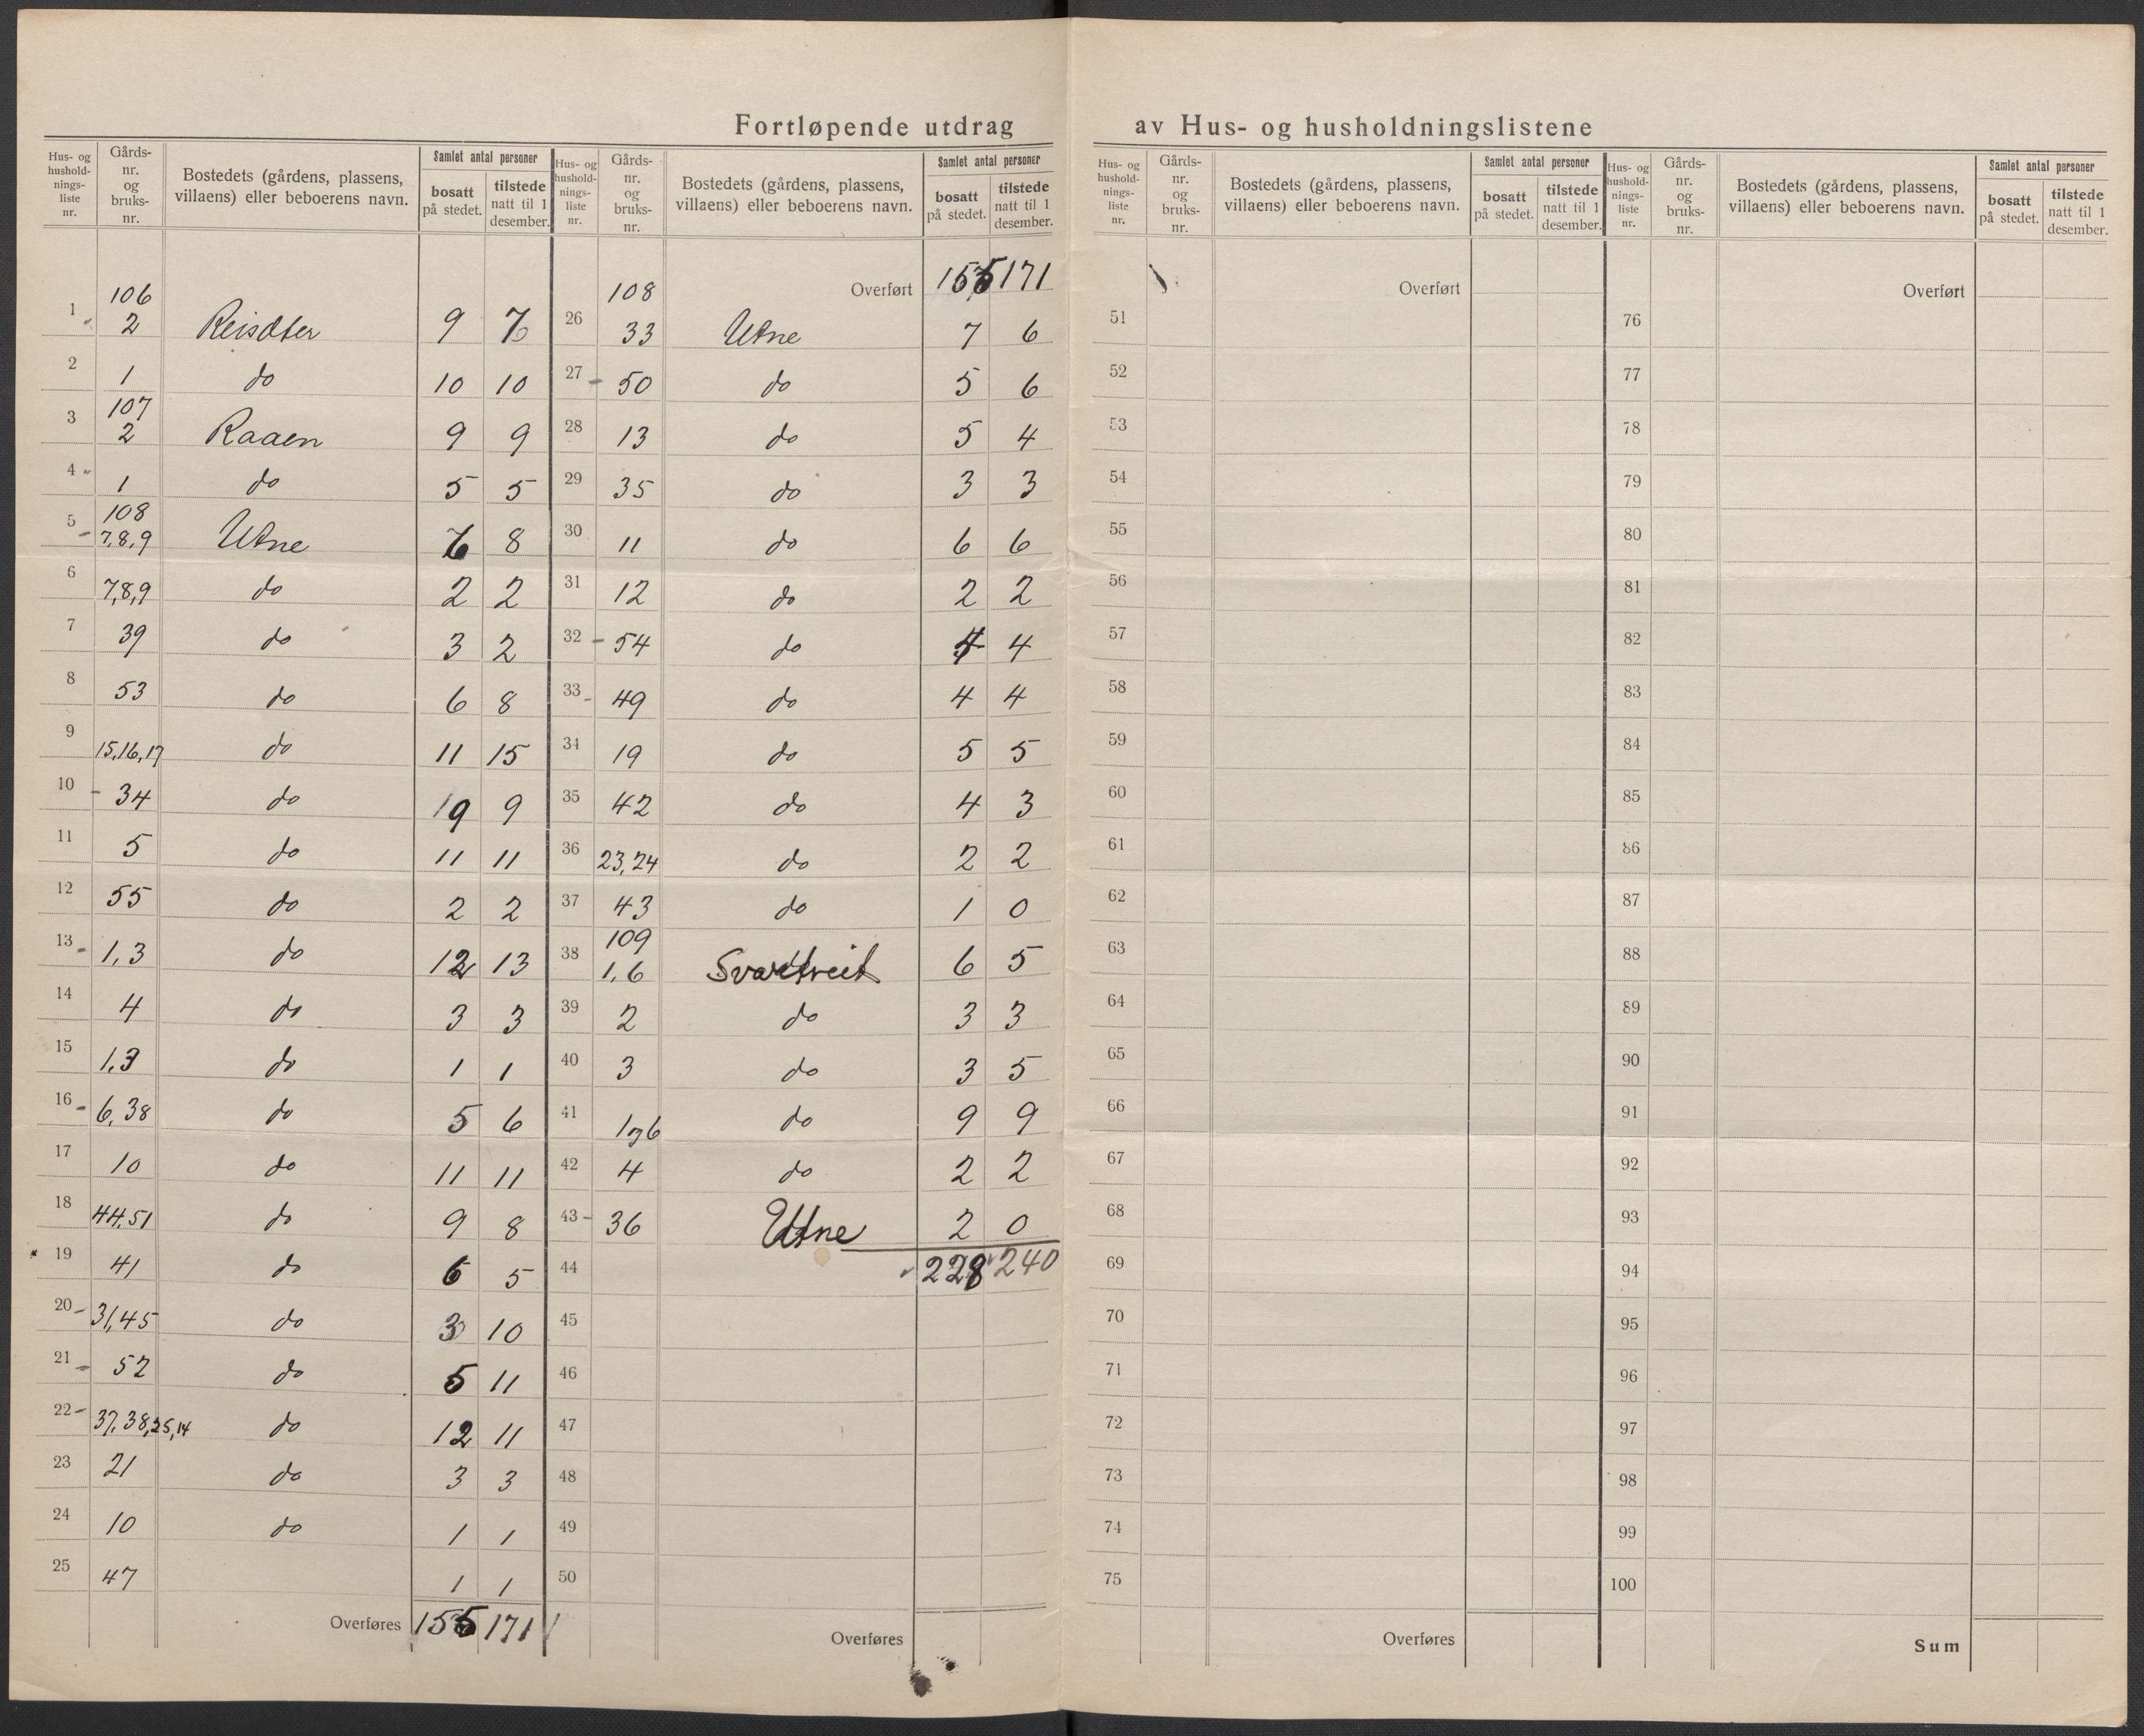 Fortløpende utdrag av Hus- og husholdningslistene
Hus- og hushold-nings-liste nr. Gårds-nr. og bruks-nr. Bostedets (gårdens, plassens, villaens) eller beboerens navn. Samlet antal personer bosatt på stedet. tilstede natt til 1 desember.
106
1 2 Reisæter 9
2 1 do 10 10
107
3 2 Raaen 9 9
4 1 do 5 5
108
5 7,8,9 Utne 8
6 7,8,9 do 2 2
7 39 do 3 2
8 53 do 6 8
9 15,16,17 do 11 15
10 34 do 9
11 5 do 11 11
12 55 do 2 2
13 1,3 do 12 13
14 4 do 3 3
15 1,3 do 1 1
16 6,38 do 5 6
17 10 do 11 11
18 44,51 do 9 8
19 41 do 6 5
20 31,45 do 3 10
21 52 do 5 11
22 37,38,25,14 do 12 11
23 21 do 3 3
24 10 do 1 1
25 47 1 1
Overføres 155 171
Hus- og hushold-nings-liste nr. Gårds-nr. og bruks-nr. Bostedets (gårdens, plassens, villaens) eller beboerens navn. Samlet antal personer bosatt på stedet. tilstede natt til 1 desember.
108 Overført 155 171
26 33 Utne 7 6
27 50 do 5 6
28 13 do 5 4
29 35 do 3 3
30 11 do 6 6
31 12 do 2 2
32 54 do 4 4
33 49 do 4 4
34 19 do 5 5
35 42 do 4 3
36 23,24 do 2 2
37 43 do 1 0
109
38 1,6 Svartveit 6 5
39 2 do 3 3
40 3 do 3 5
41 1,6 do 9 9
42 4 do 2 2
43 36 Utne 2 0
44 228 240
45
46
47
48
49
50
Overføres
Hus- og hushold-nings-liste nr. Gårds-nr. og bruks-nr. Bostedets (gårdens, plassens, villaens) eller beboerens navn. Samlet antal personer bosatt på stedet. tilstede natt til 1 desember.
Overført
51
52
53
54
55
56
57
58
59
60
61
62
63
64
65
66
67
68
69
70
71
72
73
74
75
Overføres
Hus- og hushold-nings-liste nr. Gårds-nr. og bruks-nr. Bostedets (gårdens, plassens, villaens) eller beboerens navn. Samlet antal personer bosatt på stedet. tilstede natt til 1 desember.
Overført
76
77
78
79
80
81
82
83
84
85
86
87
88
89
90
91
92
93
94
95
96
97
98
99
100
Sum